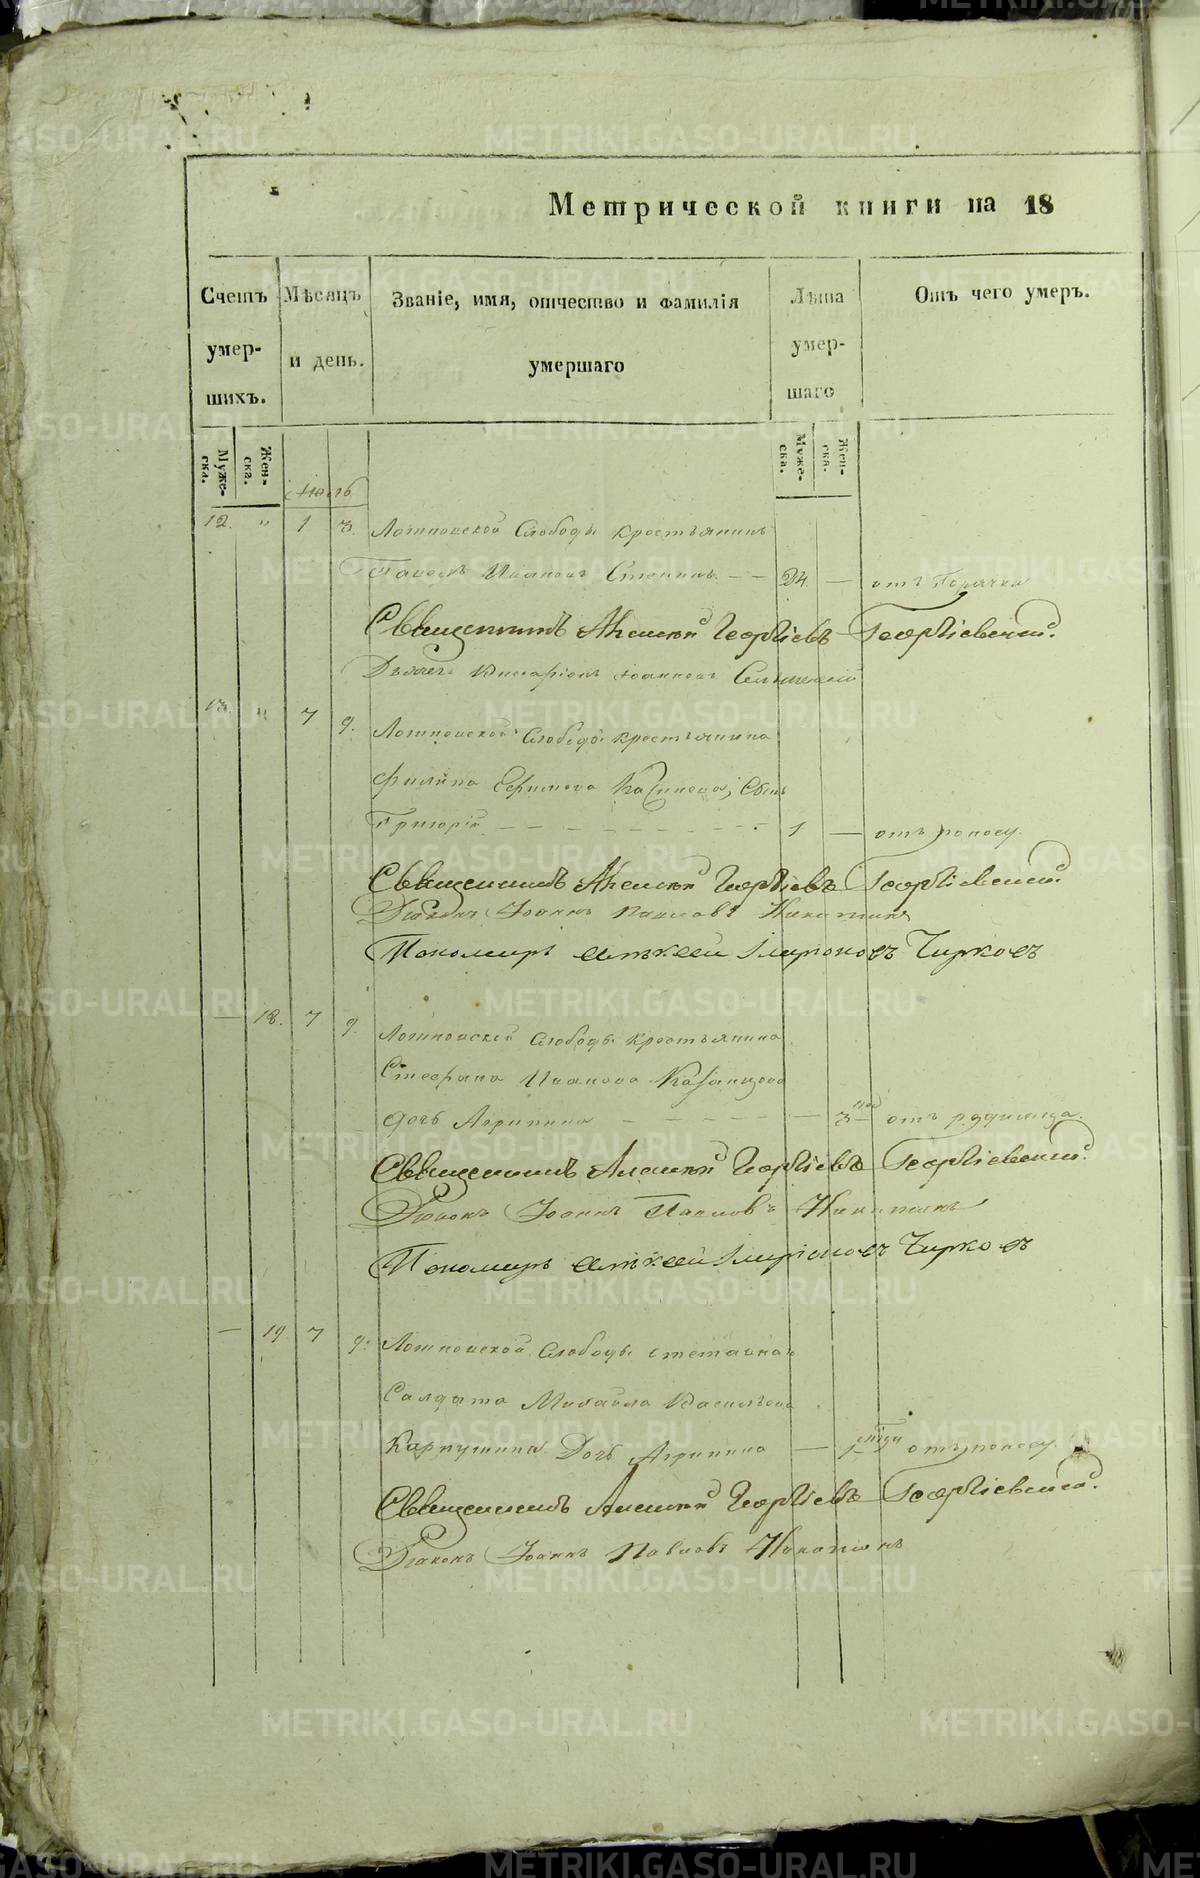 Метрической книги на 18
Счетъ умер- шихъ.
Мѣсяцъ и день.
Званіе, имя, отчество и фамилія умершаго
Лѣта умер- шаго
Отъ чего умеръ.
Муже- ска.
Жен- ска.
Муже- ска.
Жен- ска.
Июль
12. " 1 3. Слободы крестьянинъ
Павелъ Ивановъ 24. — отъ Горячки
Священникъ Алексѣй Георгіевъ Георгіевскій.
Іоанновъ
13. " 7 9. Слободы крестьянина
Филипа Ефимова Сынъ
Григорій 1 — отъ поносу.
Священникъ Алексѣй Георгіевъ Георгіевскій.
Діаконъ Іоаннъ Павловъ Никитинъ
Пономарь Алексѣй Мироновъ Чирковъ
— 18. 7 9. Слободы крестьянина
Стефана Иванова Казанцова
дочь Агрипина — 3 нед отъ родимца.
Священникъ Алексѣй Георгіевъ Георгіевскій.
Діаконъ Іоаннъ Павловъ Никитинъ
Пономарь Алексѣй Мироновъ Чирковъ
— 19 7 9. Слободы
Салдата Михаила Васильева
Карпушина Дочь Агрипина — 1 отъ поносу.
Священникъ Алексѣй Георгіевъ Георгіевскій.
Діаконъ Іоаннъ Павловъ Никитинъ
METRIKI.GASO-URAL.RU